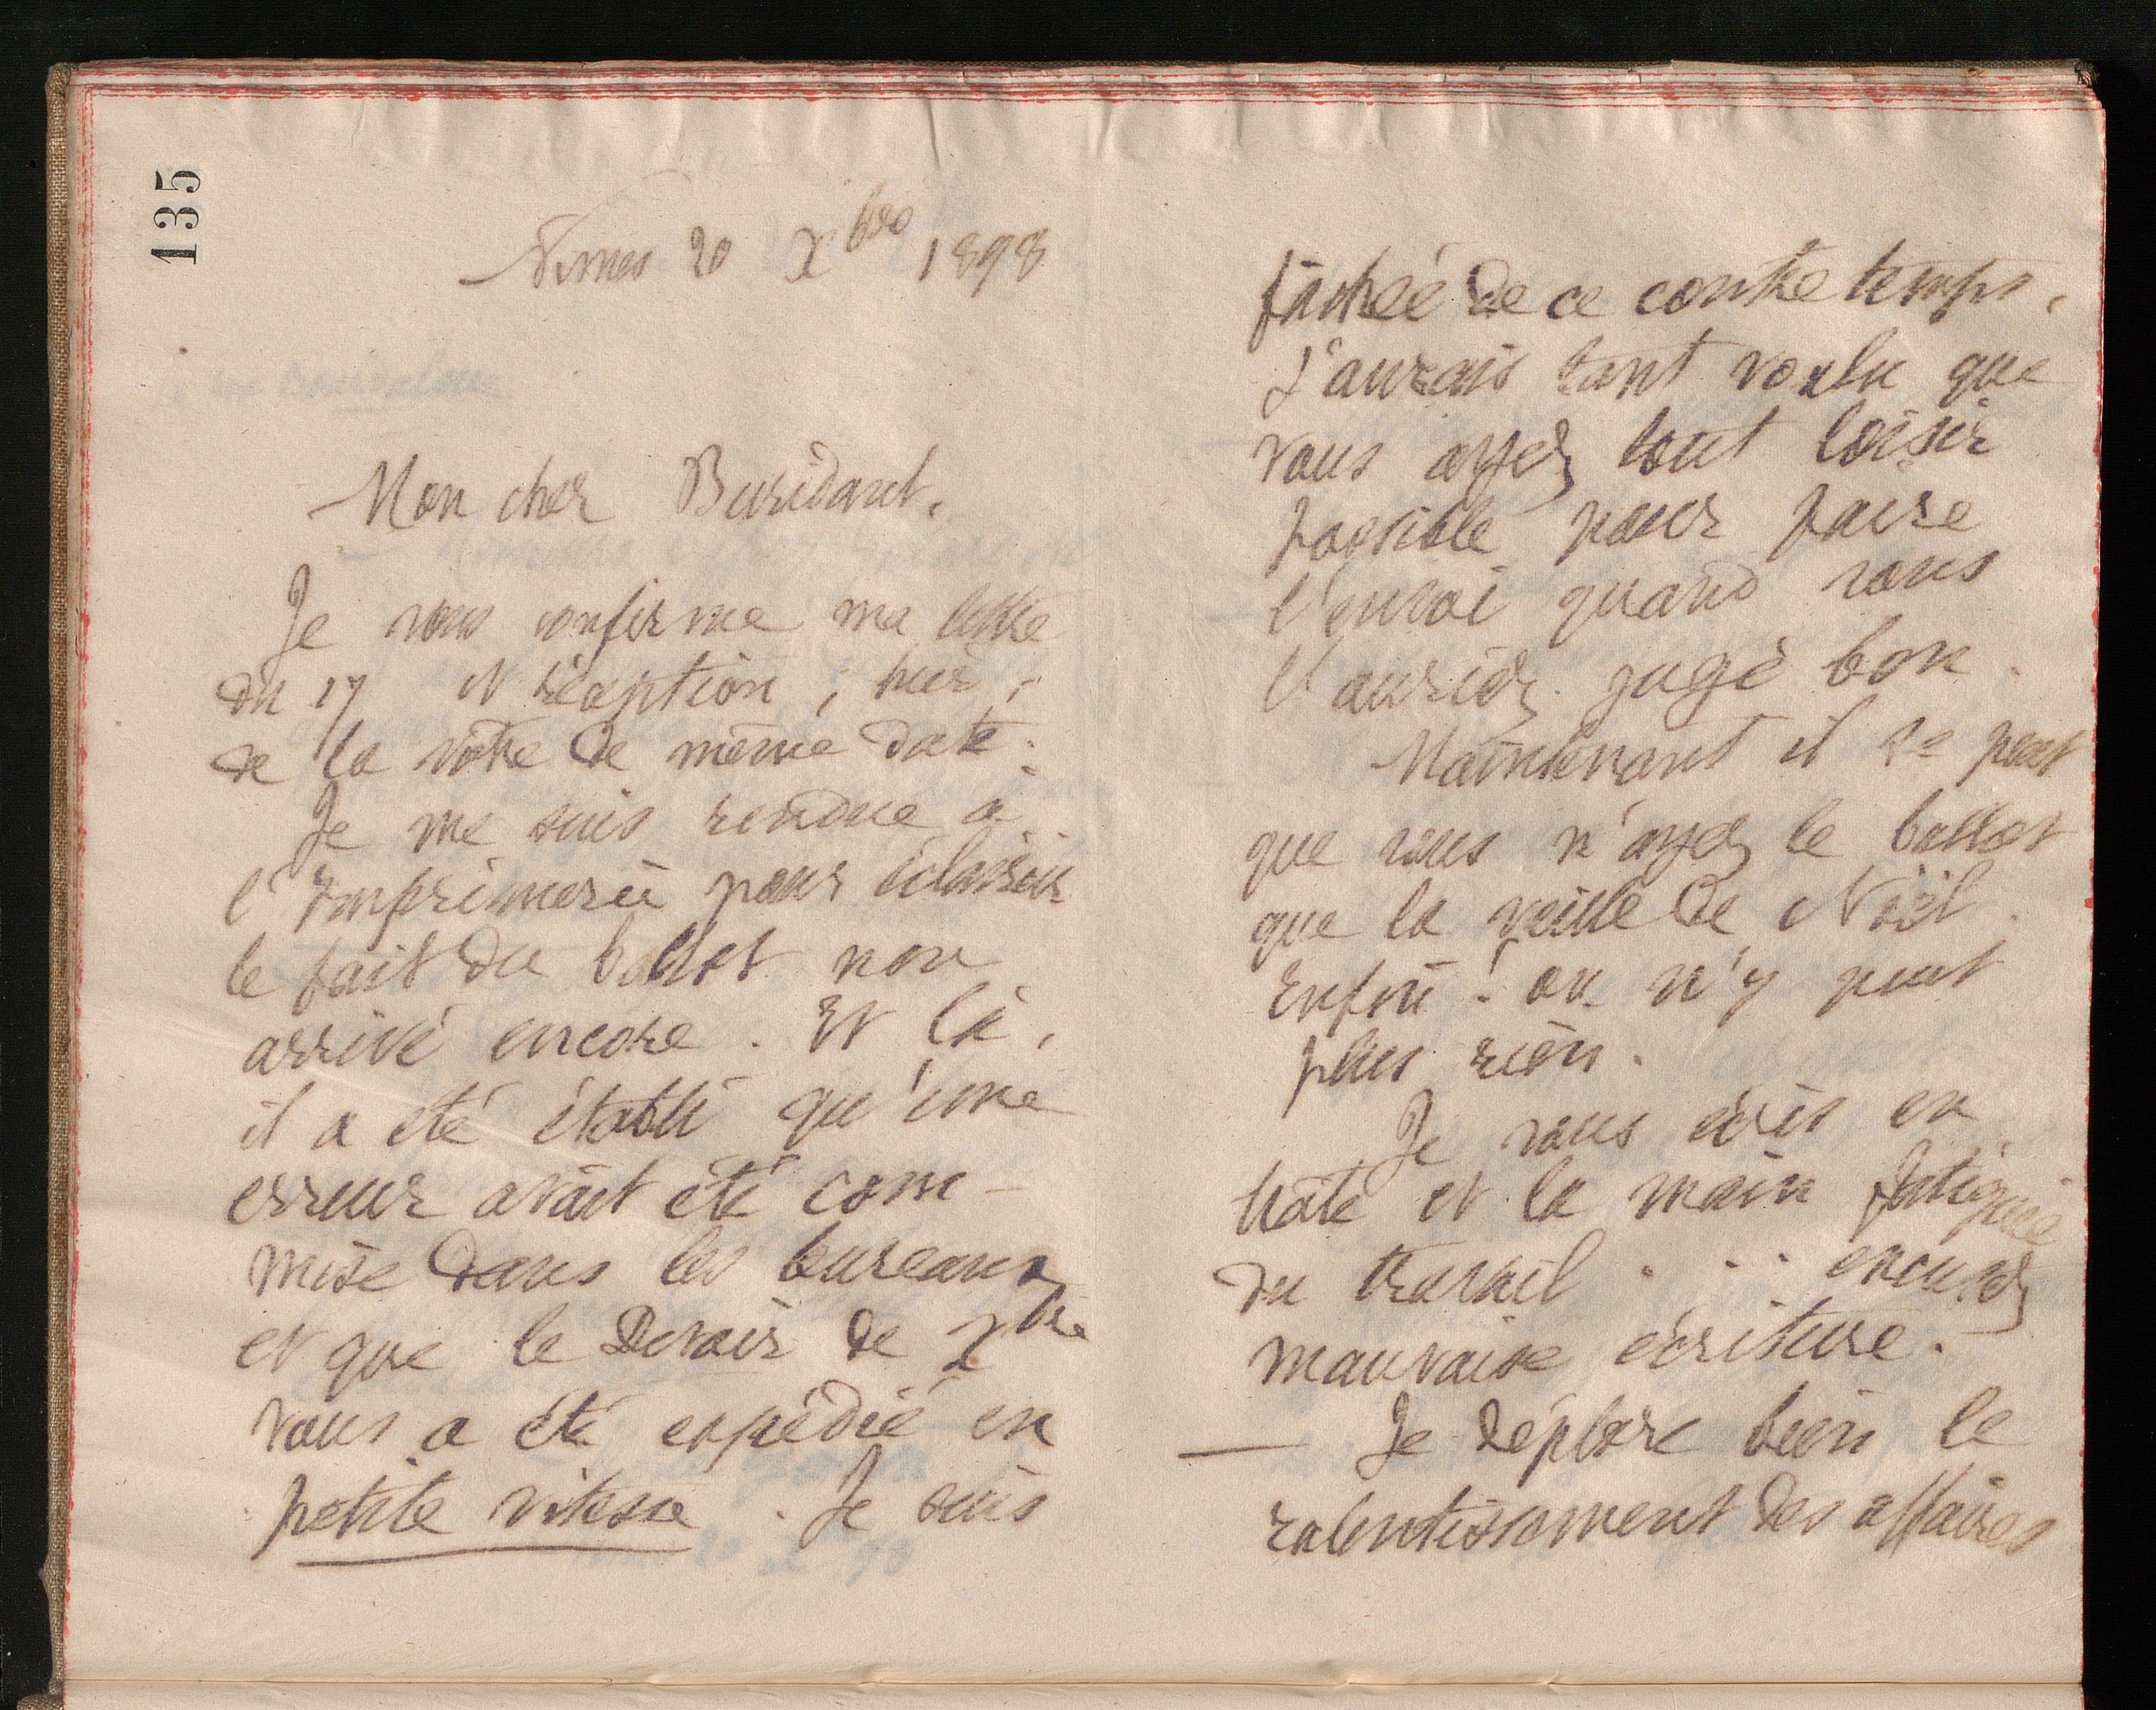 135
Nimes 20 Xbre 1898
Mon cher Buridant,
Je vous confirme ma lettre
du 17 et réception, hier,
de la vôtre de même date.
Je me suis rendue à
l'Imprimerie pour éclaircir
le fait du ballot non
arrivé encore. Et là,
il a été établi qu'une
erreur avait été com-
mise dans les bureaux
et que le Devoir de Xbre
vous a été expédié en
petite vitesse. Je suis
fâchée de ce contre temps.
J'aurais tant voulu que
vous ayez tout loisir
possible pour faire
l'envoi quand vous
l'auriez jugé bon.
Maintenant il se peut
que vous n'ayez le ballot
que la veille de Noël.
Enfin! on n'y peut
plus rien.
Je vous écris en
hâte et la main fatiguée
du travail... excusez
mauvaise écriture.
— Je déplore bien le
ralentissement des affaires